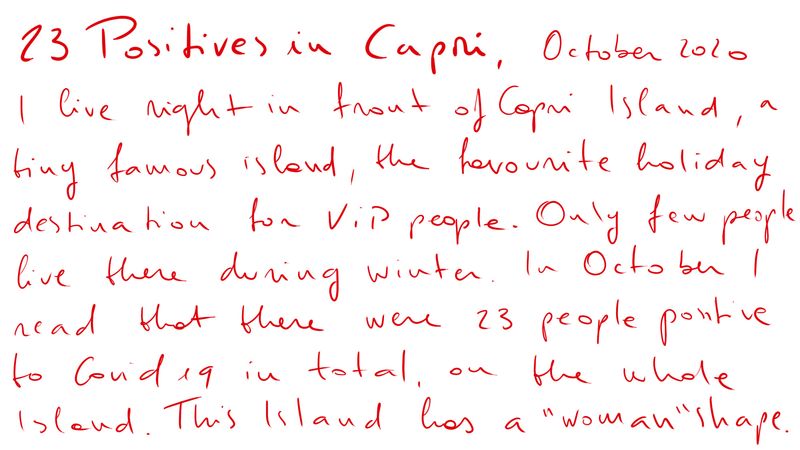 23 Positives in Capri, October 2020
I live right in front of Capri Island, a
tiny famous island, the favourite holiday
destination for ViP people. Only few people
live there during winter. In October I
read that there were 23 people positive
to Covid 19 in total, on the whole
Island. This Island has a "woman" shape.